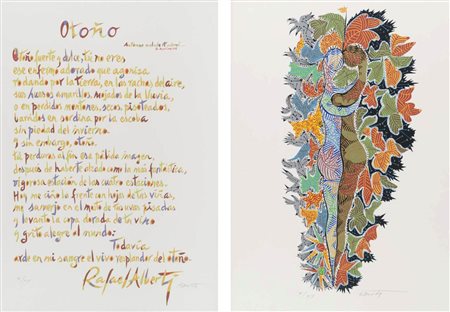 Otoño
Otoño fuerte y dulce, tú no eres
ese enfermo adorado que agoniza
rodando por la tierra, en las rachas del aire,
sus huesos amarillos, mojados de la lluvia,
o en perdidos montones, secos, pisoteados,
barridos en sordina por la escoba
sin piedad del invierno.
Y sin embargo, otoño,
tú perduras al fin esa pálida imagen,
después de haberte alzado como la más fantástica,
vigorosa estación de las cuatro estaciones.
Hoy me ciño la frente con hojas de tus viñas,
me sumerjo en el mosto de tus uvas pisadas
y levanto la copa dorada de tu vino
y grito alegre al mundo:
Todavía
arde en mi sangre el vivo resplandor del otoño.
Rafael Alberti